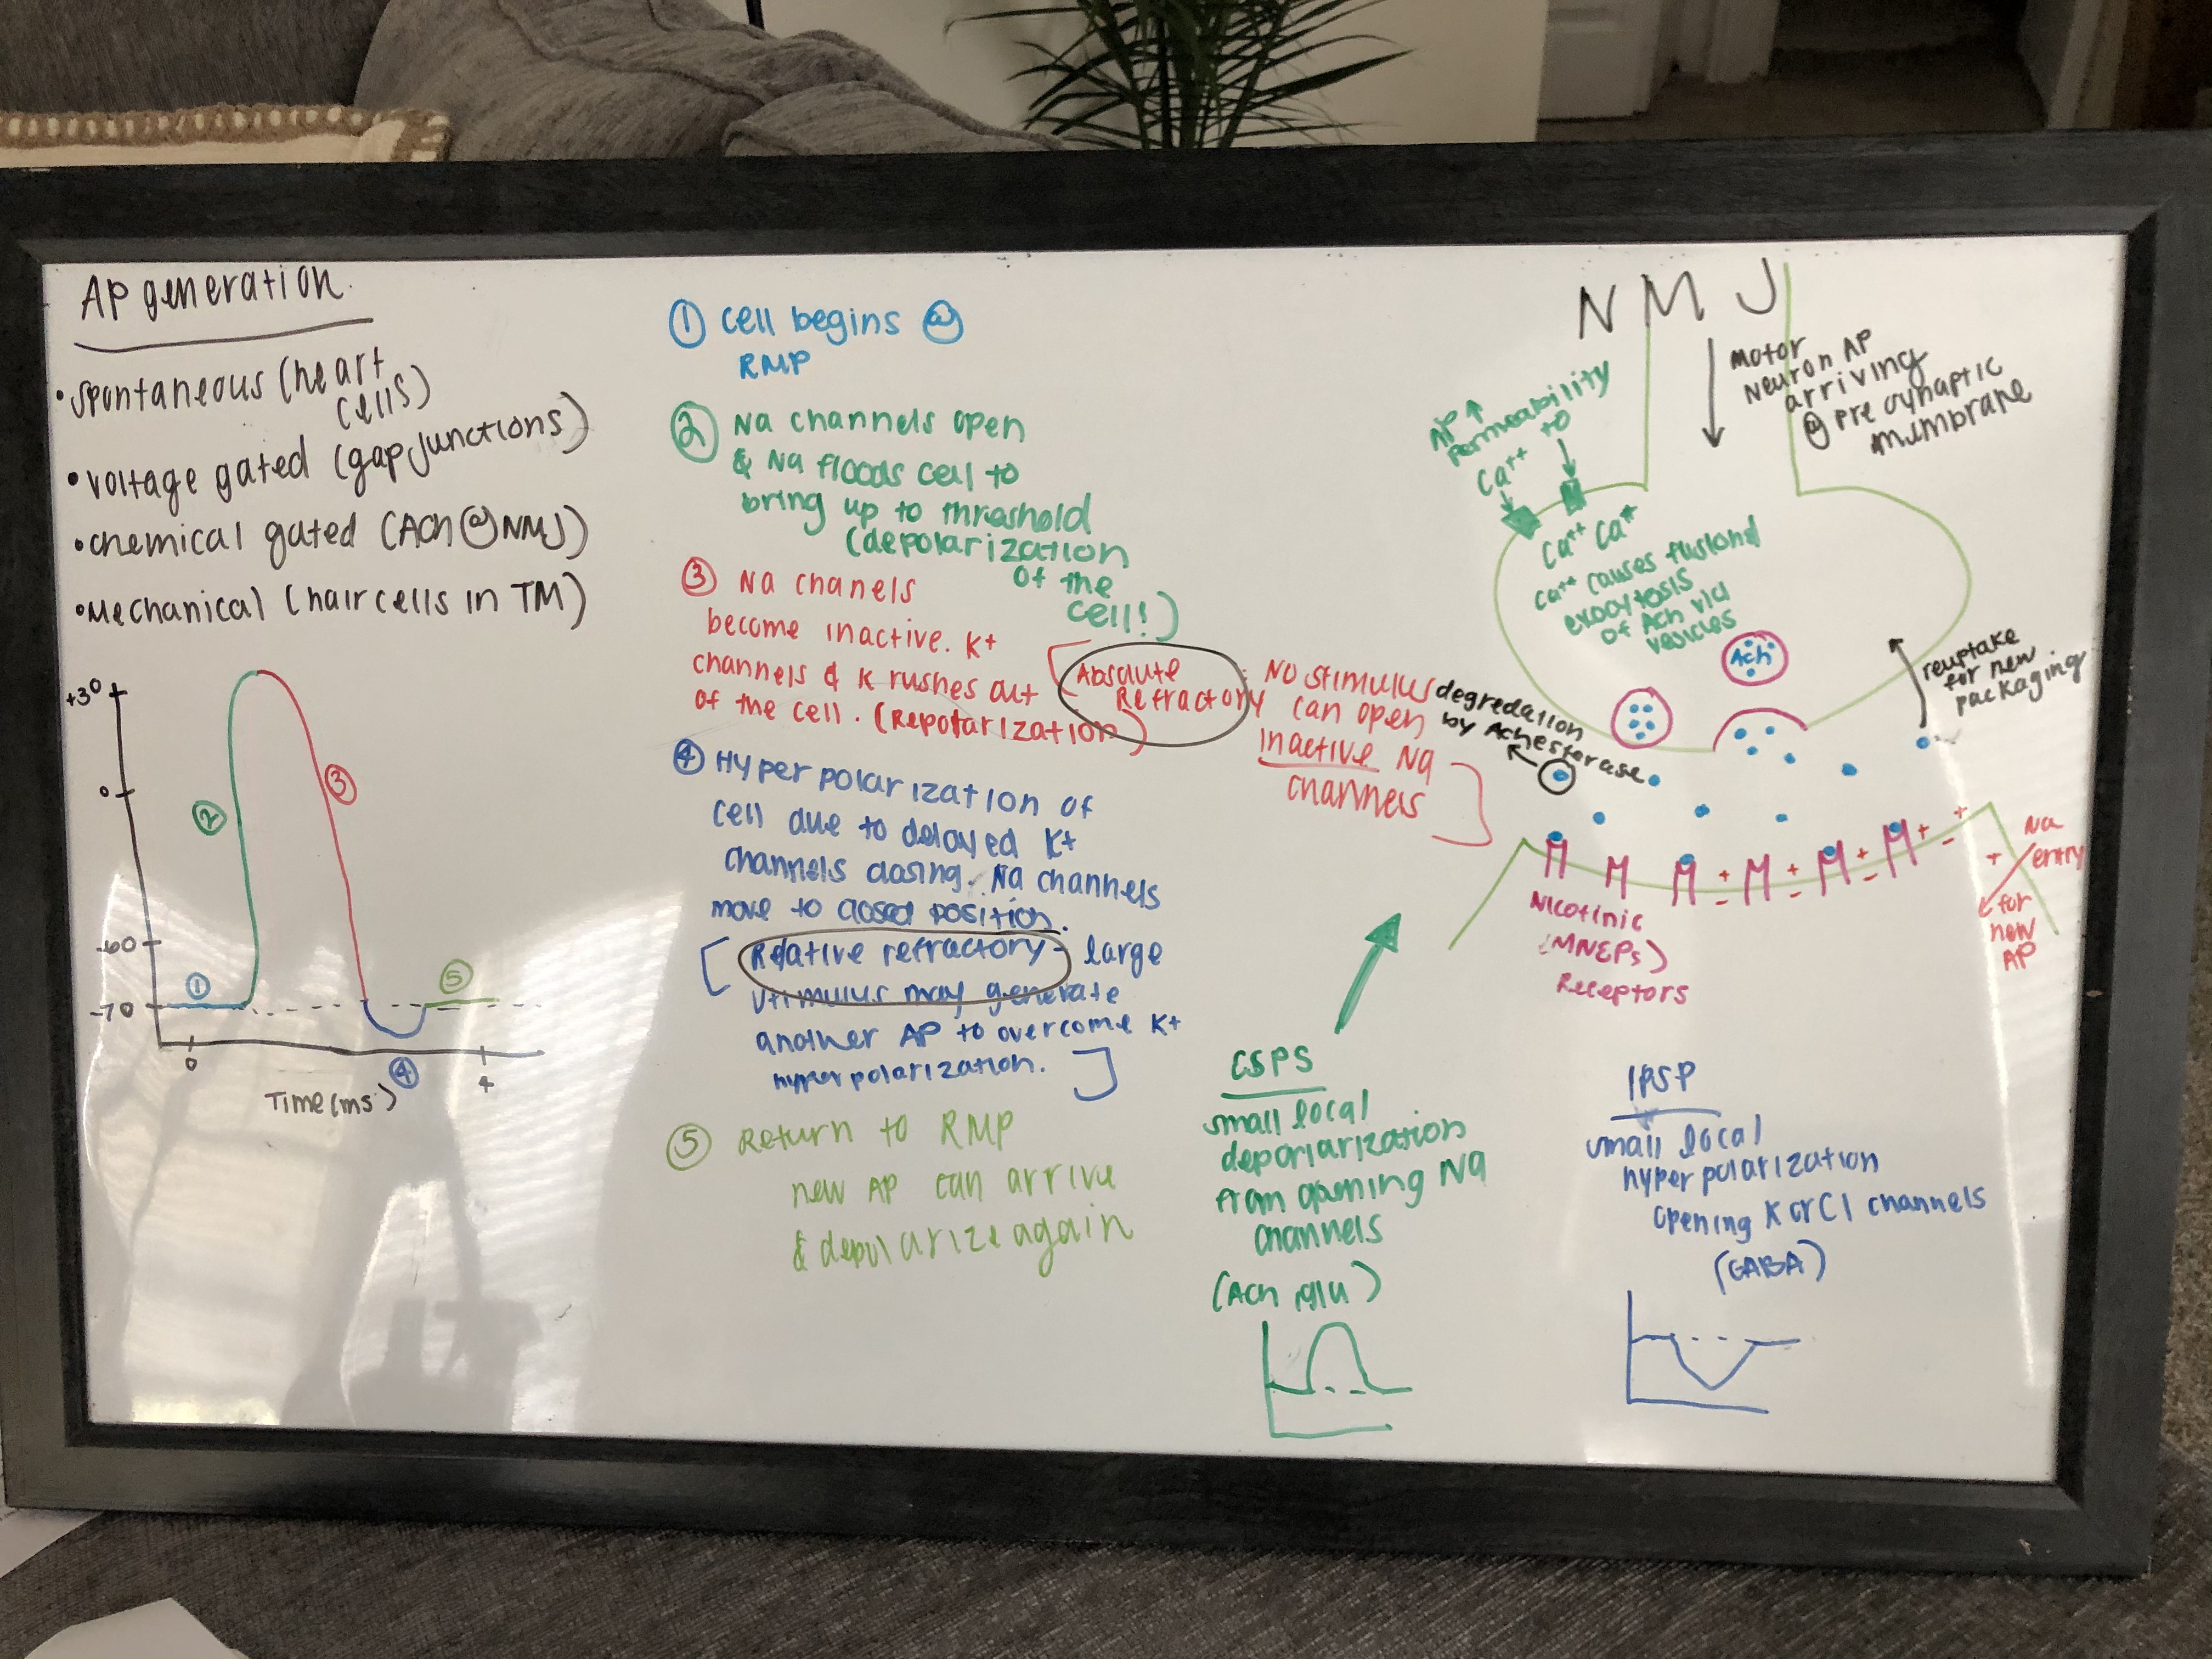 AP generation.
• spontaneous (heart
cells)
• voltage gated (gap junctions)
• chemical gated (ACh @ NMJ)
• Mechanical (hair cells in TM)
+30
0
-60
-70
1
2
3
4
5
0
4
Time (ms)
① Cell begins @
RMP
② Na channels open
& Na floods cell to
bring up to threshold
(depolarization
of the
cell!)
③ Na chanels
become inactive. K+
channels & K rushes out
of the cell. (Repolarization)
[Absolute
Refractory
: No stimulus
can open
inactive Na
channels ]
④ Hyperpolarization of
cell due to delayed K+
channels closing. Na channels
move to closed position.
[Relative refractory - large
stimulus may generate
another AP to overcome K+
hyperpolarization. ]
⑤ Return to RMP
new AP can arrive
& depolarize again
NMJ
Motor
Neuron AP
arriving
@ pre synaptic
membrane
AP ↑
permeability
Ca++ to
Ca++ Ca++
Ca++ causes
exocytosis
of ACh via
vesicles
ACh
reuptake
for new
packaging
degredation
by AChesterase
Nicotinic
(MNEPs)
Receptors
Na
entry
for
new
AP
small local
depolarization
from opening Na
channels
(ACh, glu)
IPSP
small local
hyperpolarization
opening K or Cl channels
(GABA)